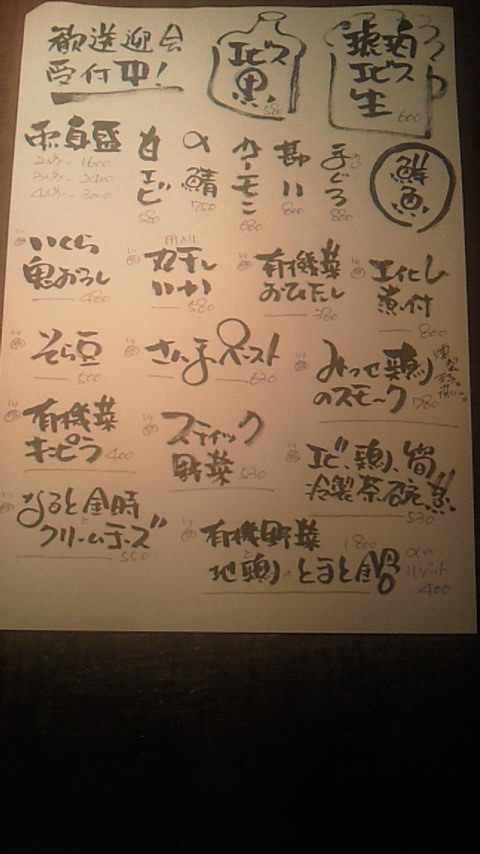 歓送迎会
受付中！
エビス
黒
580
琥珀
エビス
生
600
鮮魚
本まぐろ
880
勘八
800
サーモン
680
〆鯖
750
甘エビ
580
2人分-1600
3人分-2400
4人分-3000
いくら
鬼おろし
480
丸干し
いか
580
有機菜
おひたし
380
煮付
800
そら豆
500
さんまペースト
620
みつせ鶏
のスモーク
780
有機菜
キンピラ
400
スティック
野菜
530
エビ、鶏、筍
冷製茶碗蒸
530
なると金時
と
クリームチーズ
550
有機野菜
と
地鶏のとまと鍋
1800
〆の
リゾート
400